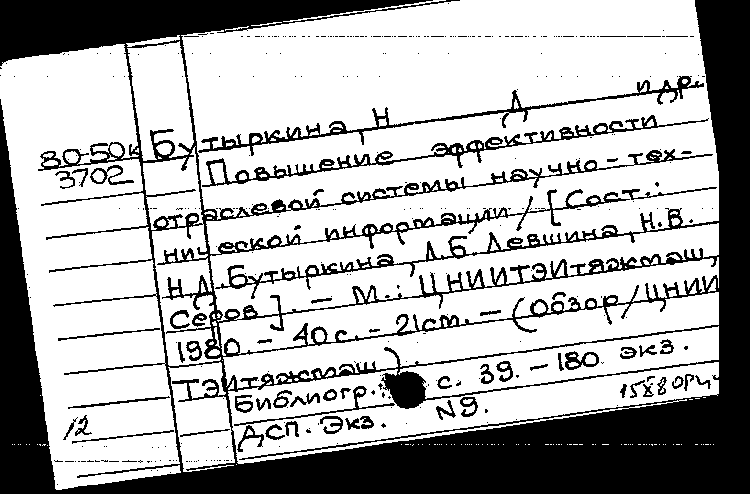 80-50к
3702
Бутыркина, Н Д и др.
Повышение эффективности
отраслевой системы научно-тех-
нической информации / [Сост.:
Н.Д. Бутыркина, Л.Б. Левшина, Н.В.
Серов]. – М.: ЦНИИТЭИтяжмаш,
1980. – 40 с. – 21 см. – (Обзор / ЦНИИ
ТЭИтяжмаш).
Библиогр. с. 39. – 180 экз.
ДСП. Экз. N9.
12